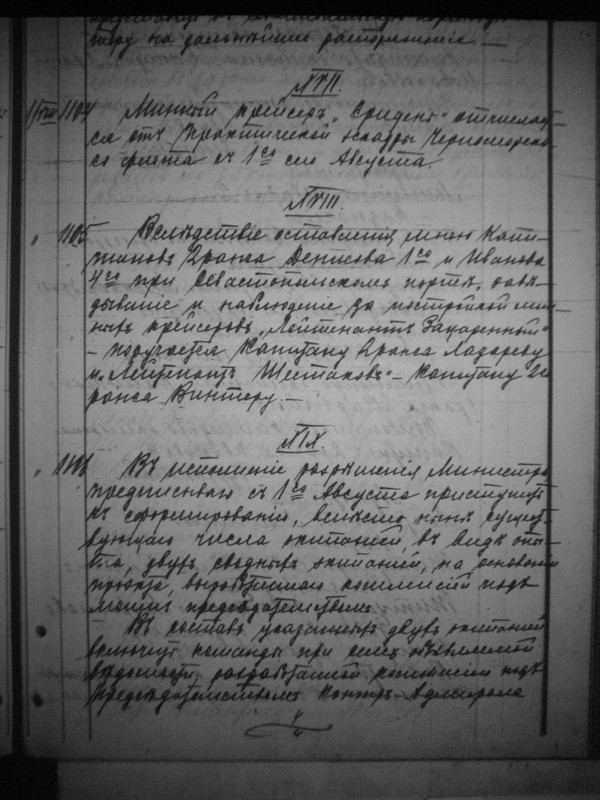 тиру на дальнѣйшее распоряженіе. —
№VII.
1104 Минный крейсеръ "Гридень" отчисляет-
ся отъ Практической эскадры Черноморска-
го флота съ 1го сего Августа.
№VIII.
1105 Вслѣдствіе оставленія мною Капи-
тановъ 2 ранга Денисова 1го и Иванова
4го при Севастопольскомъ портѣ, завѣ-
дываніе и наблюденіе за постройкой мин-
ныхъ крейсеровъ "Лейтенантъ Зацаренный"
— поручается Капитану 2 ранга Лазареву
и "Лейтенантъ Шестаковъ" — Капитану 2го
ранга Винтеру. —
№IX.
1106 Въ исполненіе разрѣшенія Министра
предписываю съ 1го Августа приступить
къ сформированію, вмѣсто нынѣ сущест-
вующаго числа экипажей, въ видѣ опы-
та, двухъ сводныхъ экипажей, на основаніи
проэкта, выработаннаго коммисіей подъ
моимъ предсѣдательствомъ.
Въ составъ указанныхъ двухъ экипажей
включить команды при семъ объявляемой
вѣдомости, разработанной коммисіей подъ
предсѣдательствомъ Контръ-Адмирала